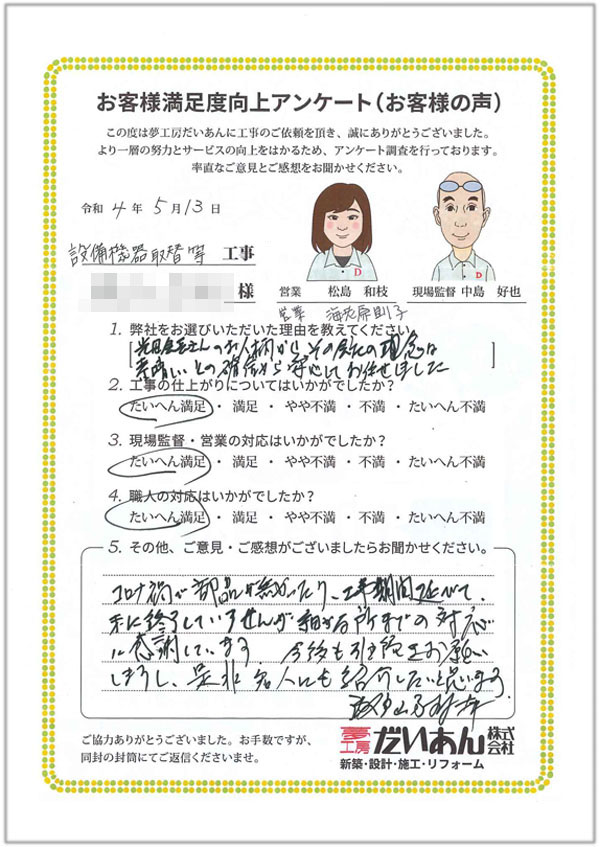 お客様満足度向上アンケート（お客様の声）
この度は夢工房だいあんに工事のご依頼を頂き、誠にありがとうございました。
より一層の努力とサービスの向上をはかるため、アンケート調査を行っております。
率直なご意見とご感想をお聞かせください。
令和 4 年 5 月 13 日
設備機器取替等 工事
様
D
D
営業 松島 和枝
現場監督 中島 好也
営業 海老原則子
1. 弊社をお選びいただいた理由を教えてください
光田会長さんのお人柄からその会社の理念は
素晴しいとの確信から安心してお任せしました
2. 工事の仕上がりについてはいかがでしたか？
たいへん満足・ 満足 ・ やや不満 ・ 不満 ・ たいへん不満
3. 現場監督・営業の対応はいかがでしたか？
たいへん満足・ 満足 ・ やや不満 ・ 不満 ・ たいへん不満
4. 職人の対応はいかがでしたか？
たいへん満足・ 満足 ・ やや不満 ・ 不満 ・ たいへん不満
5. その他、ご意見・ご感想がございましたらお聞かせください。
コロナ禍で部品が無かったり、工事期間延びて、
未に終了していませんが細かな所までの対応
に感謝しています 今後も引続きお願い
しますし、是非 友人にも紹介したいと思います
ご協力ありがとうございました。お手数ですが、
同封の封筒にてご返信くださいませ。
夢工房 だいあん 株式会社
新築・設計・施工・リフォーム